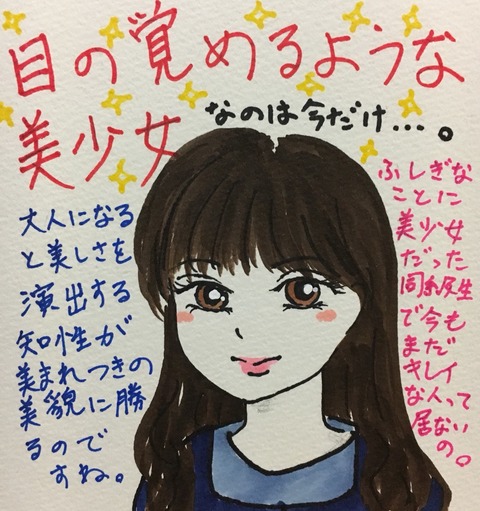 目の覚めるような
美少女
なのは今だけ…。
ふしぎな
ことに
美少女
だった
同級生
で今も
まだ
キレイ
な人って
居ない
の。
大人になる
と美しさを
演出する
知性が
美まれつきの
美貌に勝
るので
すね。